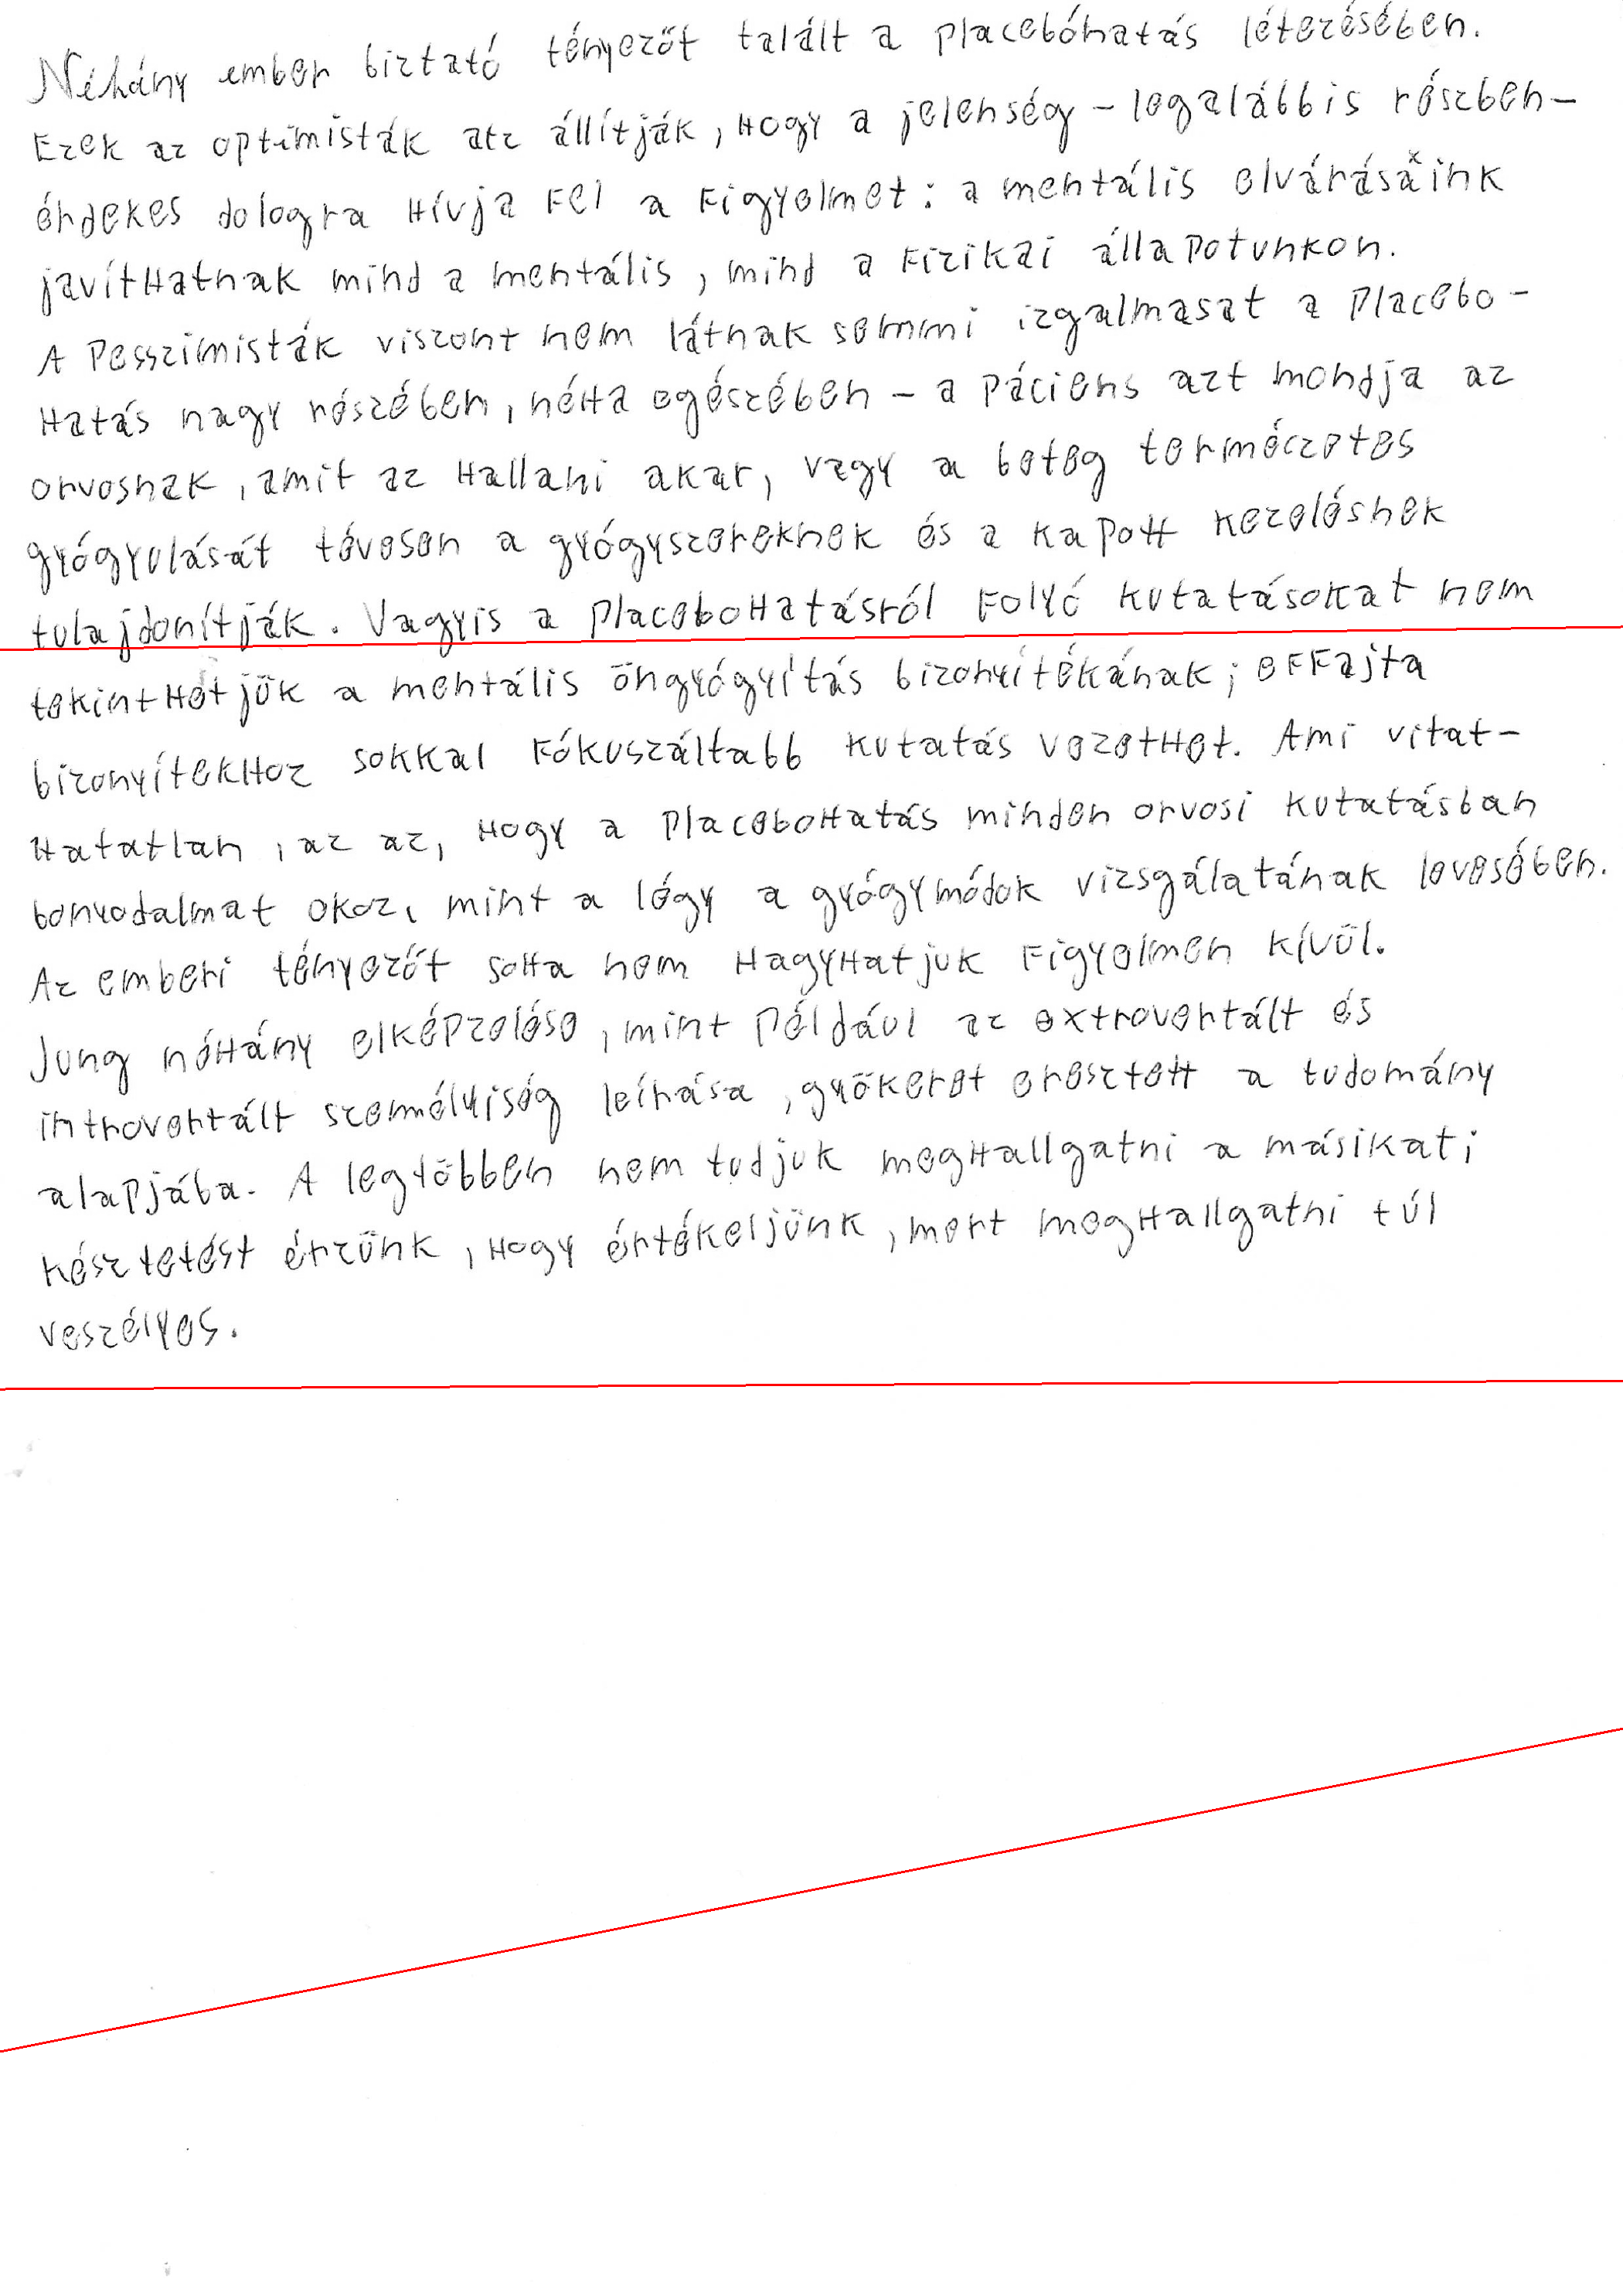 Néhány ember biztató tényezőt talált a placebóhatás létezésében.
Ezek az optimisták atz állítják, hogy a jelenség – legalábbis részben –
érdekes dologra hívja fel a figyelmet: a mentális elvárásaink
javíthatnak mind a mentális, mind a fizikai állapotunkon.
A pesszimisták viszont nem látnak semmi izgalmasat a placebo-
hatás nagy részében, néha egészében – a páciens azt mondja az
orvosnak, amit az hallani akar, vagy a beteg természetes
gyógyulását tévesen a gyógyszereknek és a kapott kezelésnek
tulajdonítják. Vagyis a placebohatásról folyó kutatásokat nem
tekinthetjük a mentális öngyógyítás bizonyítékának; effajta
bizonyítekhoz sokkal fókuszáltabb kutatás vezethet. Ami vitat-
hatatlan, az az, hogy a placebohatás minden orvosi kutatásban
bonyodalmat okoz, mint a légy a gyógymódok vizsgálatának levesében.
Az emberi tényezőt soha nem hagyhatjuk figyelmen kívül.
Jung néhány elképzelése, mint például az extrovertált és
introvertált személyiség leírása, gyökeret eresztett a tudomány
alapjába. A legtöbben nem tudjuk meghallgatni a másikat;
késztetést érzünk, hogy értékeljünk, mert meghallgatni túl
veszélyes.